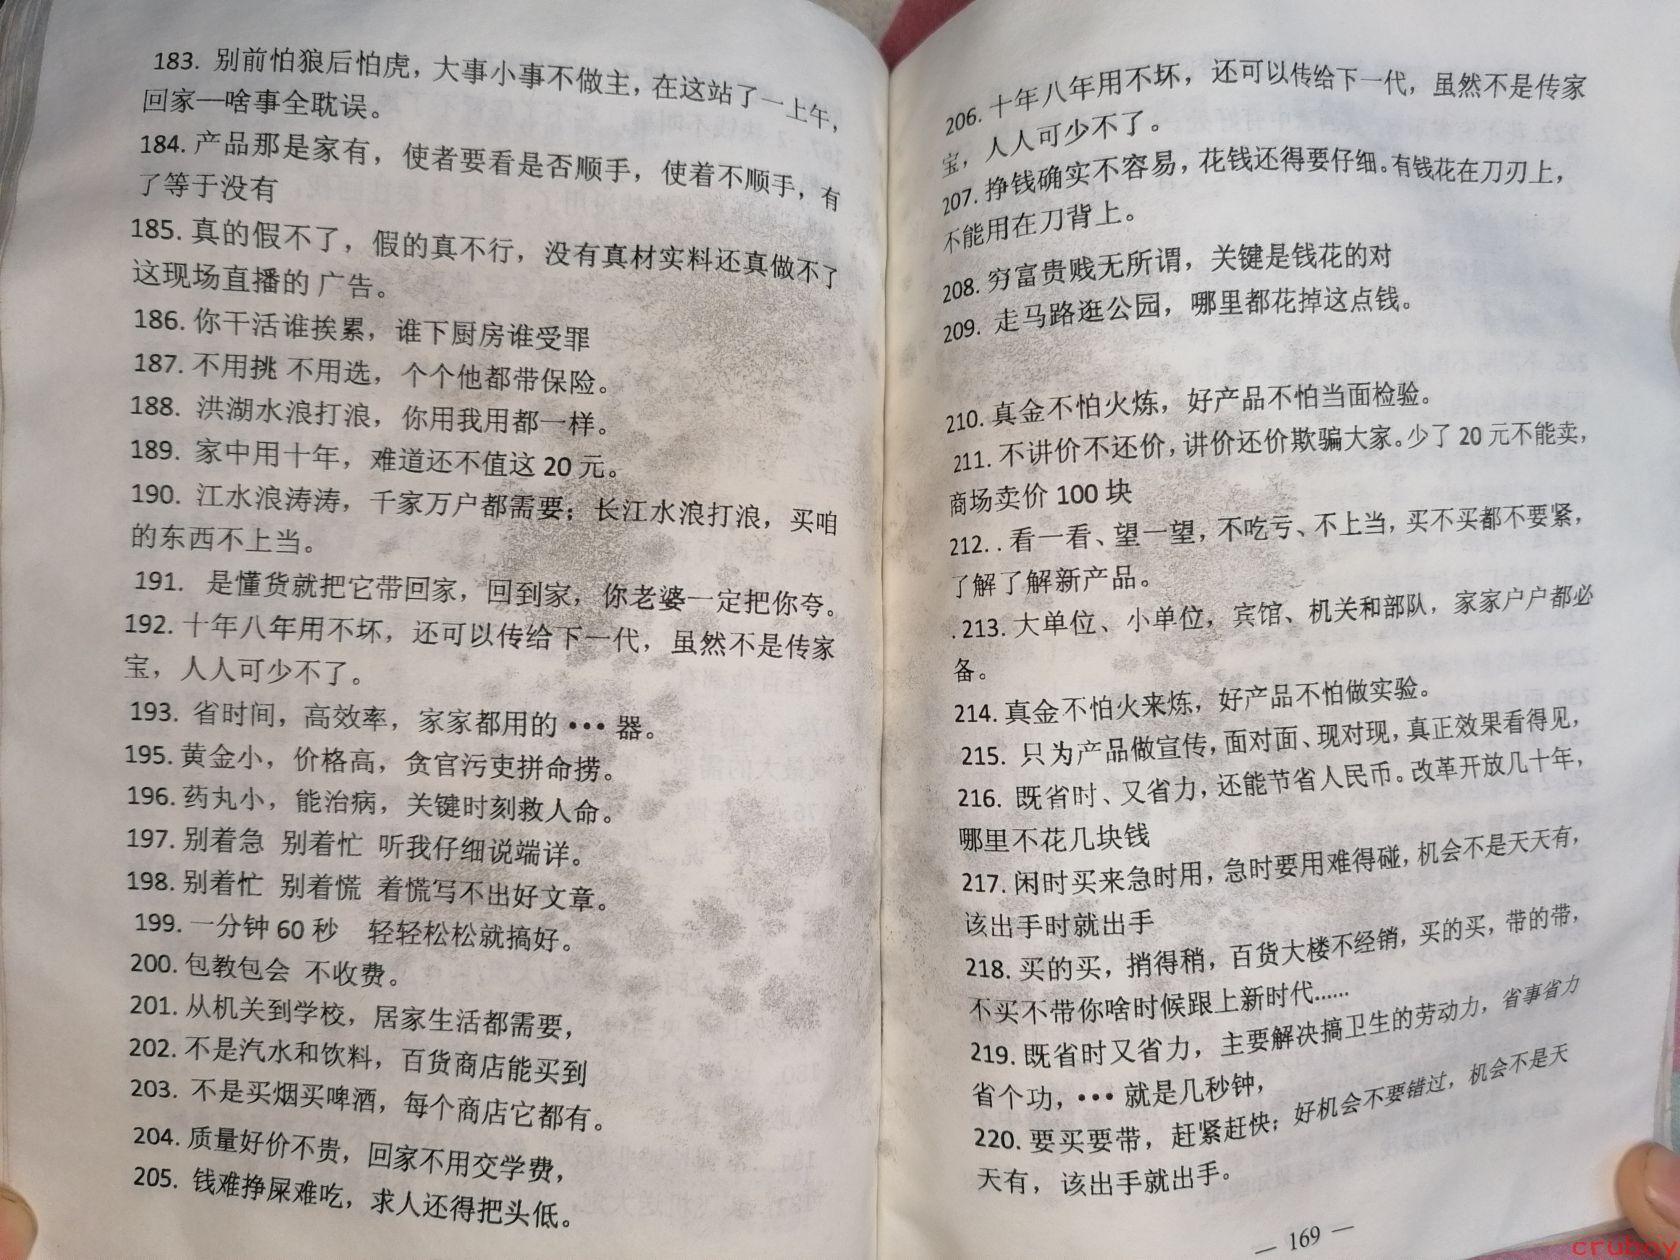 183. 别前怕狼后怕虎，大事小事不做主，在这站了一上午，
回家一啥事全耽误。
184. 产品那是家有，使者要看是否顺手，使着不顺手，有
了等于没有
185. 真的假不了，假的真不行，没有真材实料还真做不了
这现场直播的 广告。
186. 你干活谁挨累，谁下厨房谁受罪
187. 不用挑 不用选，个个他都带保险。
188. 洪湖水浪打浪，你用我用都一样。
189. 家中用十年，难道还不值这 20 元。
190. 江水浪涛涛，千家万户都需要；长江水浪打浪，买咱
的东西不上当。
191. 是懂货就把它带回家，回到家，你老婆一定把你夸。
192. 十年八年用不坏，还可以传给下一代，虽然不是传家
宝，人人可少不了。
193. 省时间，高效率，家家都用的 ••• 器。
195. 黄金小，价格高，贪官污吏拼命捞。
196. 药丸小，能治病，关键时刻救人命。
197. 别着急 别着忙 听我仔细说端详。
198. 别着忙 别着慌 着慌写不出好文章。
199. 一分钟 60 秒 轻轻松松就搞好。
200. 包教包会 不收费。
201. 从机关到学校，居家生活都需要，
202. 不是汽水和饮料，百货商店能买到
203. 不是买烟买啤酒，每个商店它都有。
204. 质量好价不贵，回家不用交学费，
205. 钱难挣屎难吃，求人还得把头低。
206. 十年八年用不坏，还可以传给下一代，虽然不是传家
宝，人人可少不了。
207. 挣钱确实不容易，花钱还得要仔细。有钱花在刀刃上，
不能用在刀背上。
208. 穷富贵贱无所谓，关键是钱花的对
209. 走马路逛公园，哪里都花掉这点钱。
210. 真金不怕火炼，好产品不怕当面检验。
211. 不讲价不还价，讲价还价欺骗大家。少了 20 元不能卖，
商场卖价 100 块
212. . 看一看、望一望，不吃亏、不上当，买不买都不要紧，
了解了解新产品。
. 213. 大单位、小单位，宾馆、机关和部队，家家户户都必
备。
214. 真金不怕火来炼，好产品不怕做实验。
215. 只为产品做宣传，面对面、现对现，真正效果看得见，
216. 既省时、又省力，还能节省人民币。改革开放几十年，
哪里不花几块钱
217. 闲时买来急时用，急时要用难得碰，机会不是天天有，
该出手时就出手
218. 买的买，捎得稍，百货大楼不经销，买的买，带的带，
不买不带你啥时候跟上新时代……
219. 既省时又省力，主要解决搞卫生的劳动力，省事省力
省个功，••• 就是几秒钟，
220. 要买要带，赶紧赶快；好机会不要错过，机会不是天
天有，该出手就出手。
— 169 —
cruboy